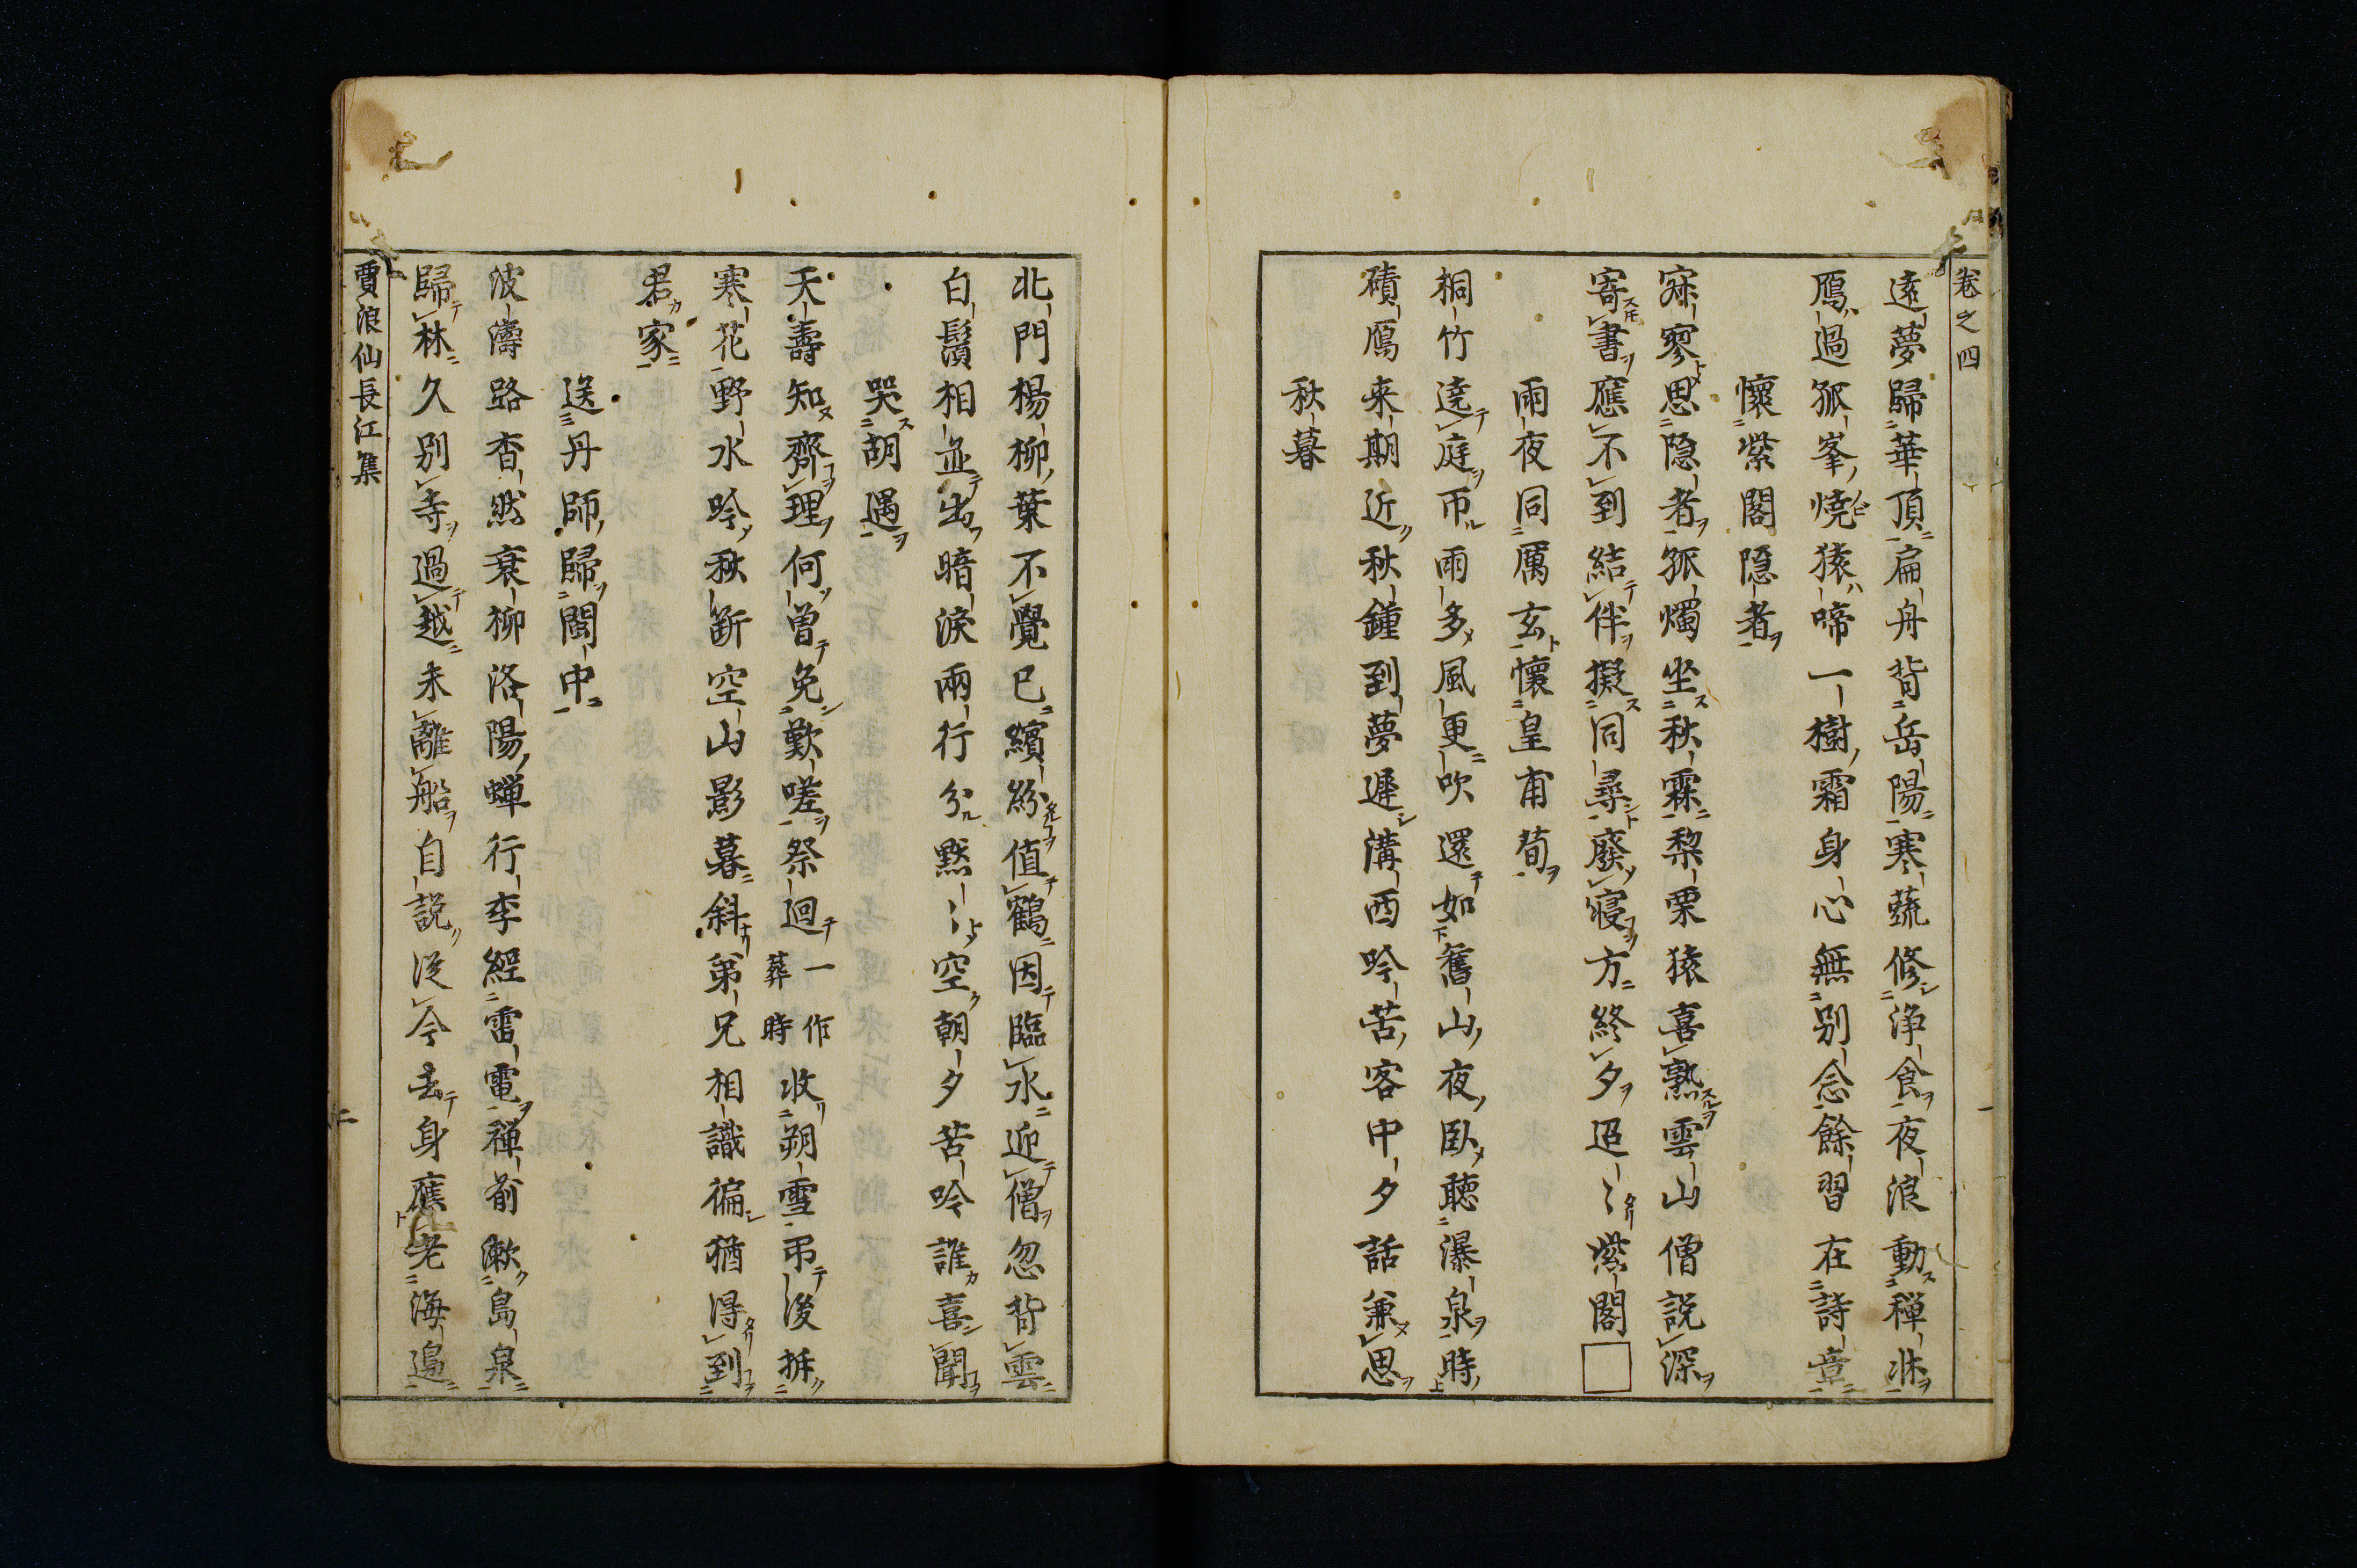 卷之四
遠夢歸華頂扁舟背岳陽寒蔬修浄食夜浪動禪牀
鴈過孤峯燒猿啼一樹霜身心無別念餘習在詩章
懷紫閣隠者
寂寥思隠者孤燭坐秋霖梨栗猿喜熟雲山僧説深
寄書應不到結伴擬同尋廢寝方終夕迢〻紫閣□
雨夜同厲玄懷皇甫荀
桐竹遶庭帀雨多風更吹還如舊山夜臥聴瀑泉時
磧鴈来期近秋鍾到夢遲溝西吟苦客中夕話兼思
秋暮
北門楊柳葉不覺已繽紛值鶴因臨水迎僧忽背雲
白鬚相並出暗淚兩行分黙〻空朝夕苦吟誰喜聞
哭胡遇
夭壽知齊理何曽免歎嗟祭迴一作葬時收朔雪弔後拆
寒花野水吟秋斷空山影暮斜弟兄相識徧猶得到
君家
送丹師歸閩中
波濤路杳然衰柳洛陽蟬行李經雷電禪前漱島泉
歸林久別寺過越未離船自説從今去身應老海邊
賈浪仙長江集
二